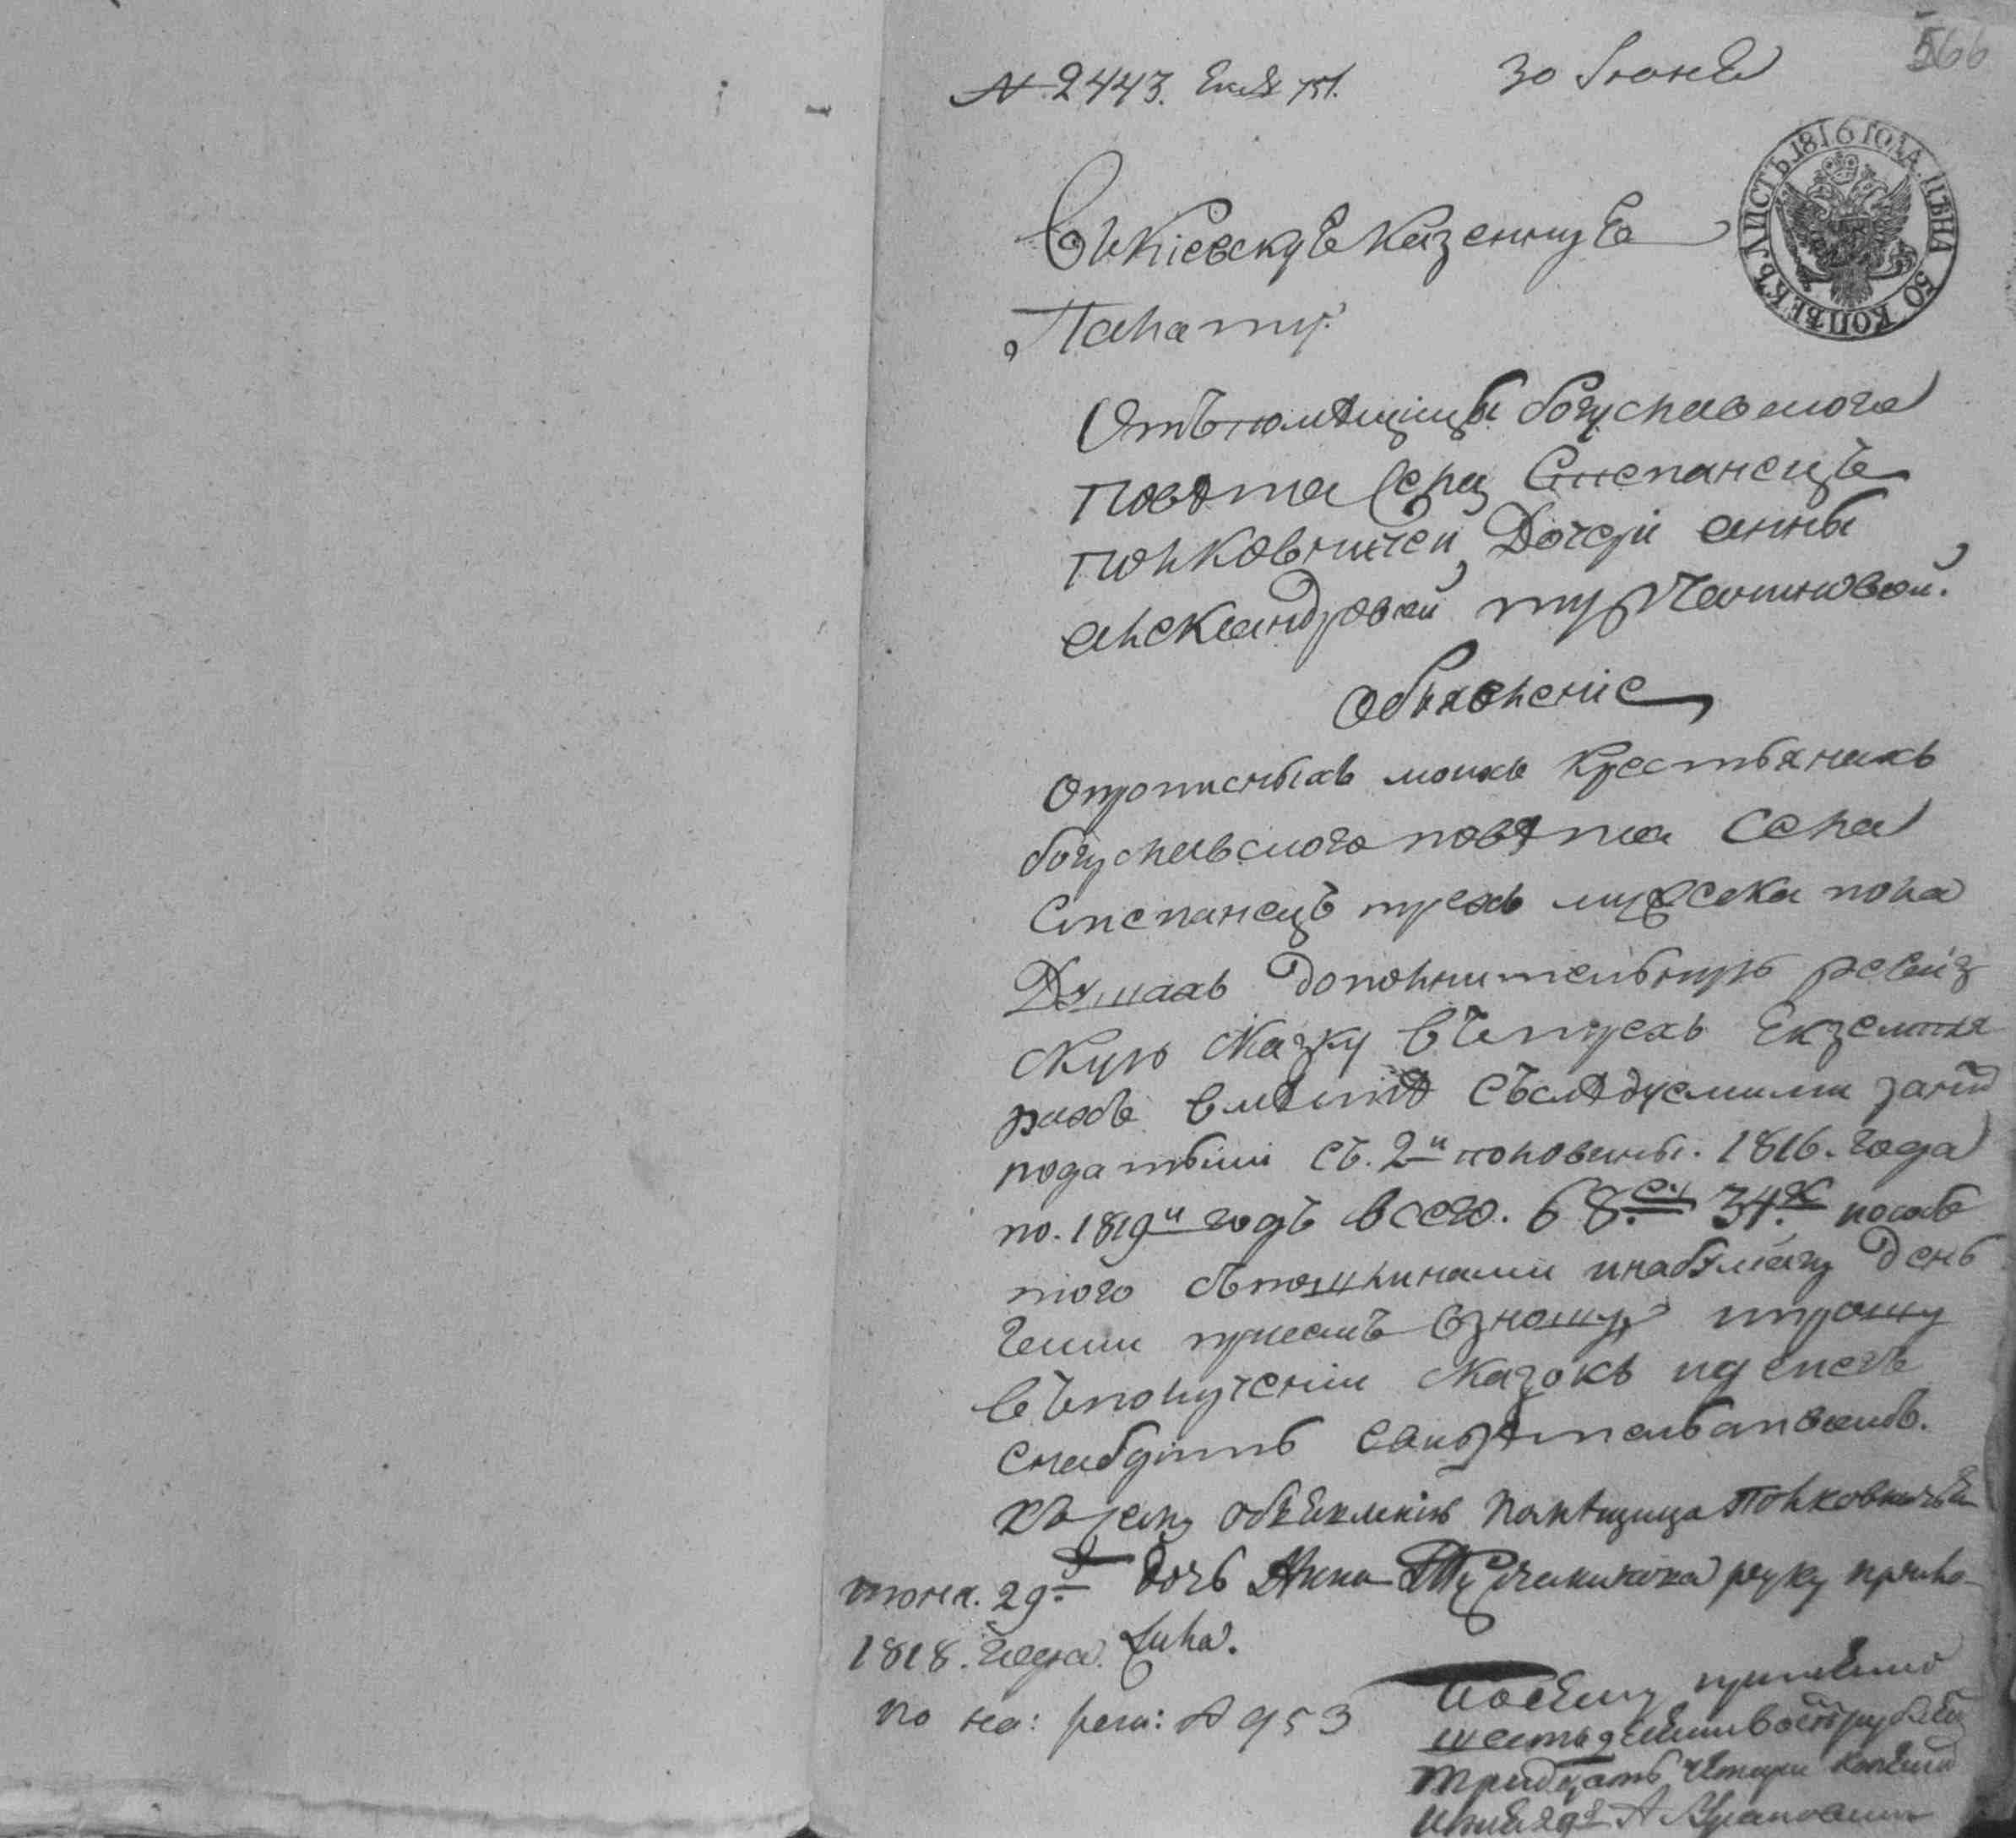 № 2443. 30 Іюня 566
ЛИСТЪ 1816 ГОДА ЦѢНА 50 КОПѢЕКЪ
Въ Кіевскую Казенную
Палату
Отъ помѣщицы богуславского
повѣта села Степанецъ
полковничей дочери анны
александровой турчаниновой.
Объявленіе
О прописныхъ моихъ крестьянахъ
богуславского повѣта села
Степанецъ трехъ мужеска пола
душахъ дополнительную ревиз
скую скаску въ трехъ екземпля
рахъ вмѣстѣ съ слѣдуемыми за нихъ
податьми съ. 2й половины. 1816. года
по. 1819й годъ всего. 68. 34.
того съ пошлинами и на бумагу день
гами при семъ взношу, и прошу
въ полученіи сказокъ и денегъ
снабдить
къ сему объявленію помѣщица полковничья
июня. 29 дочь Анна Турчанинова руку прило
1818. года. жила.
по на: реги: № 953 По сему принято
шестьдесятъ восемь рублей
тридцать четыре копейки
июня 29